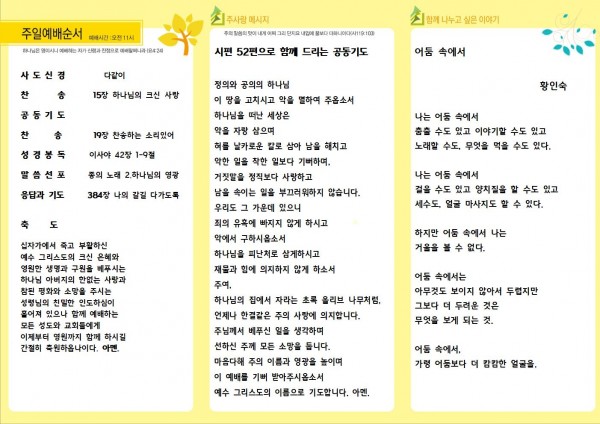 주일예배순서 예배시간 : 오전 11시
하나님은 영이시니 예배하는 자가 신령과 진정으로 예배할찌니라 (요4:24)
사 도 신 경 다같이
찬 송 15장 하나님의 크신 사랑
공 동 기 도
찬 송 19장 찬송하는 소리있어
성 경 봉 독 이사야 42장 1-9절
말 씀 선 포 종의 노래 2.하나님의 영광
응답과 기도 384장 나의 갈길 다가도록
축 도
십자가에서 죽고 부활하신
예수 그리스도의 크신 은혜와
영원한 생명과 구원을 베푸시는
하나님 아버지의 한없는 사랑과
참된 평화와 소망을 주시는
성령님의 친밀한 인도하심이
흩어져 있으나 함께 예배하는
모든 성도와 교회들에게
이제부터 영원까지 함께 하시길
간절히 축원하옵나이다. 아멘.
주사랑 메시지
주의 말씀의 맛이 내게 어찌 그리 단지요 내입에 꿀보다 더하니이다(시119:103)
시편 52편으로 함께 드리는 공동기도
정의와 공의의 하나님
이 땅을 고치시고 악을 멸하여 주옵소서
하나님을 떠난 세상은
악을 자랑 삼으며
혀를 날카로운 칼로 삼아 남을 해치고
악한 일을 착한 일보다 기뻐하며,
거짓말을 정직보다 사랑하고
남을 속이는 일을 부끄러워하지 않습니다.
우리도 그 가운데 있으니
죄의 유혹에 빠지지 않게 하시고
악에서 구하시옵소서
하나님을 피난처로 삼게하시고
재물과 힘에 의지하지 않게 하소서
주여,
하나님의 집에서 자라는 초록 올리브 나무처럼,
언제나 한결같은 주의 사랑에 의지합니다.
주님께서 베푸신 일을 생각하며
선하신 주께 모든 소망을 둡니다.
마음다해 주의 이름과 영광을 높이며
이 예배를 기뻐 받아주시옵소서
예수 그리스도의 이름으로 기도합니다. 아멘.
함께 나누고 싶은 이야기
어둠 속에서
황인숙
나는 어둠 속에서
춤출 수도 있고 이야기할 수도 있고
노래할 수도, 무엇을 먹을 수도 있다.
나는 어둠 속에서
걸을 수도 있고 양치질을 할 수도 있고
세수도, 얼굴 마사지도 할 수 있다.
하지만 어둠 속에서 나는
거울을 볼 수 없다.
어둠 속에서는
아무것도 보이지 않아서 두렵지만
그보다 더 두려운 것은
무엇을 보게 되는 것.
어둠 속에서,
가령 어둠보다 더 캄캄한 얼굴을.